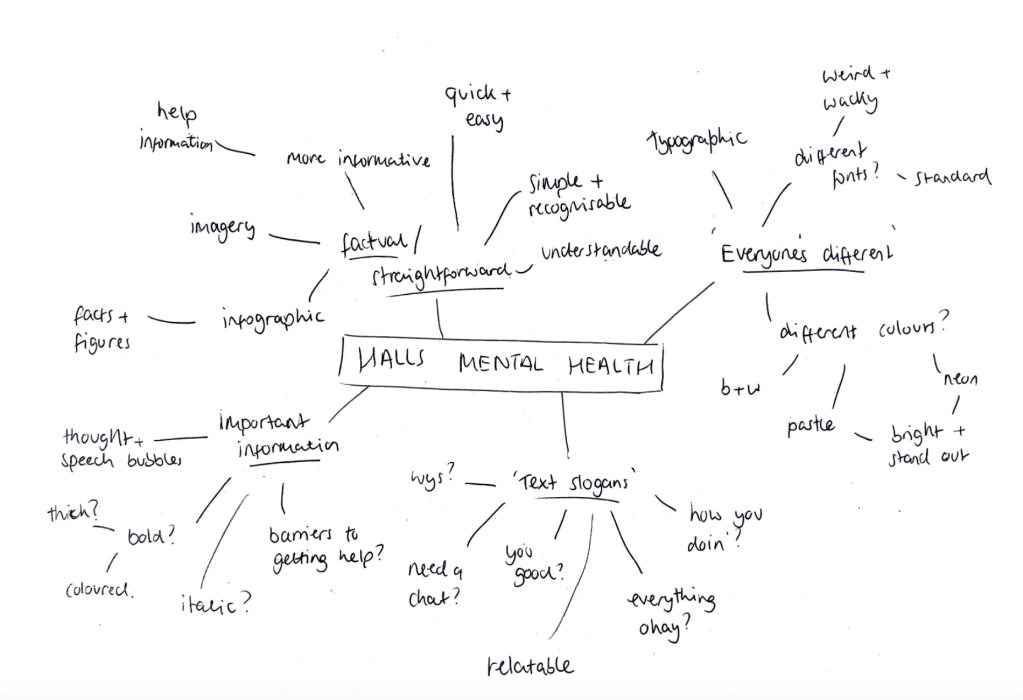 weird +
wacky
quick +
easy
help
information
typographic
different
fonts?
more informative
standard
simple +
recognisable
imagery
factual /
straightforward
understandable
'Everyone's different'
infographic
facts +
figures
different colours?
HALLS MENTAL HEALTH
neon
b+w
pastle
bright +
stand out
important
information
thought +
speech bubbles
'Text slogans'
wys?
thick?
bold?
barriers to
getting help?
how you
doin'?
you
good?
need a
chat?
coloured.
italic?
everything
okay?
relatable